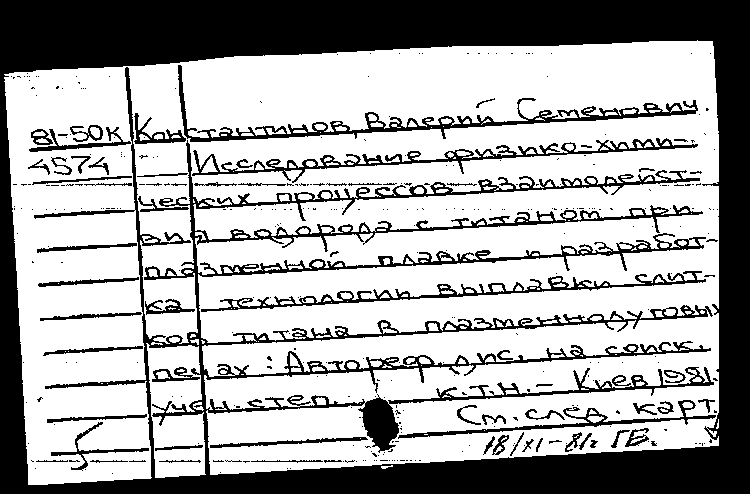 81-50К Константинов, Валерий Семенович.
4574 Исследование физико-хими-
ческих процессов взаимодейст-
вия водорода с титаном при
плазменной плавке и разработ-
ка технологии выплавки слит-
ков титана в плазменнодуговых
печах : Автореф. дис. на соиск.
учен. степ. к.т.н. - Киев, 1981.
См. след. карт.
18/XI-81г. ГВ.
5